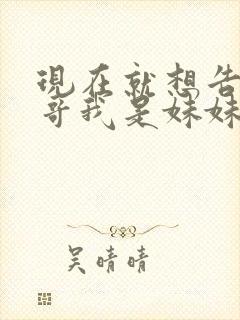 現在就想告
哥我是妹妹
吴晴晴